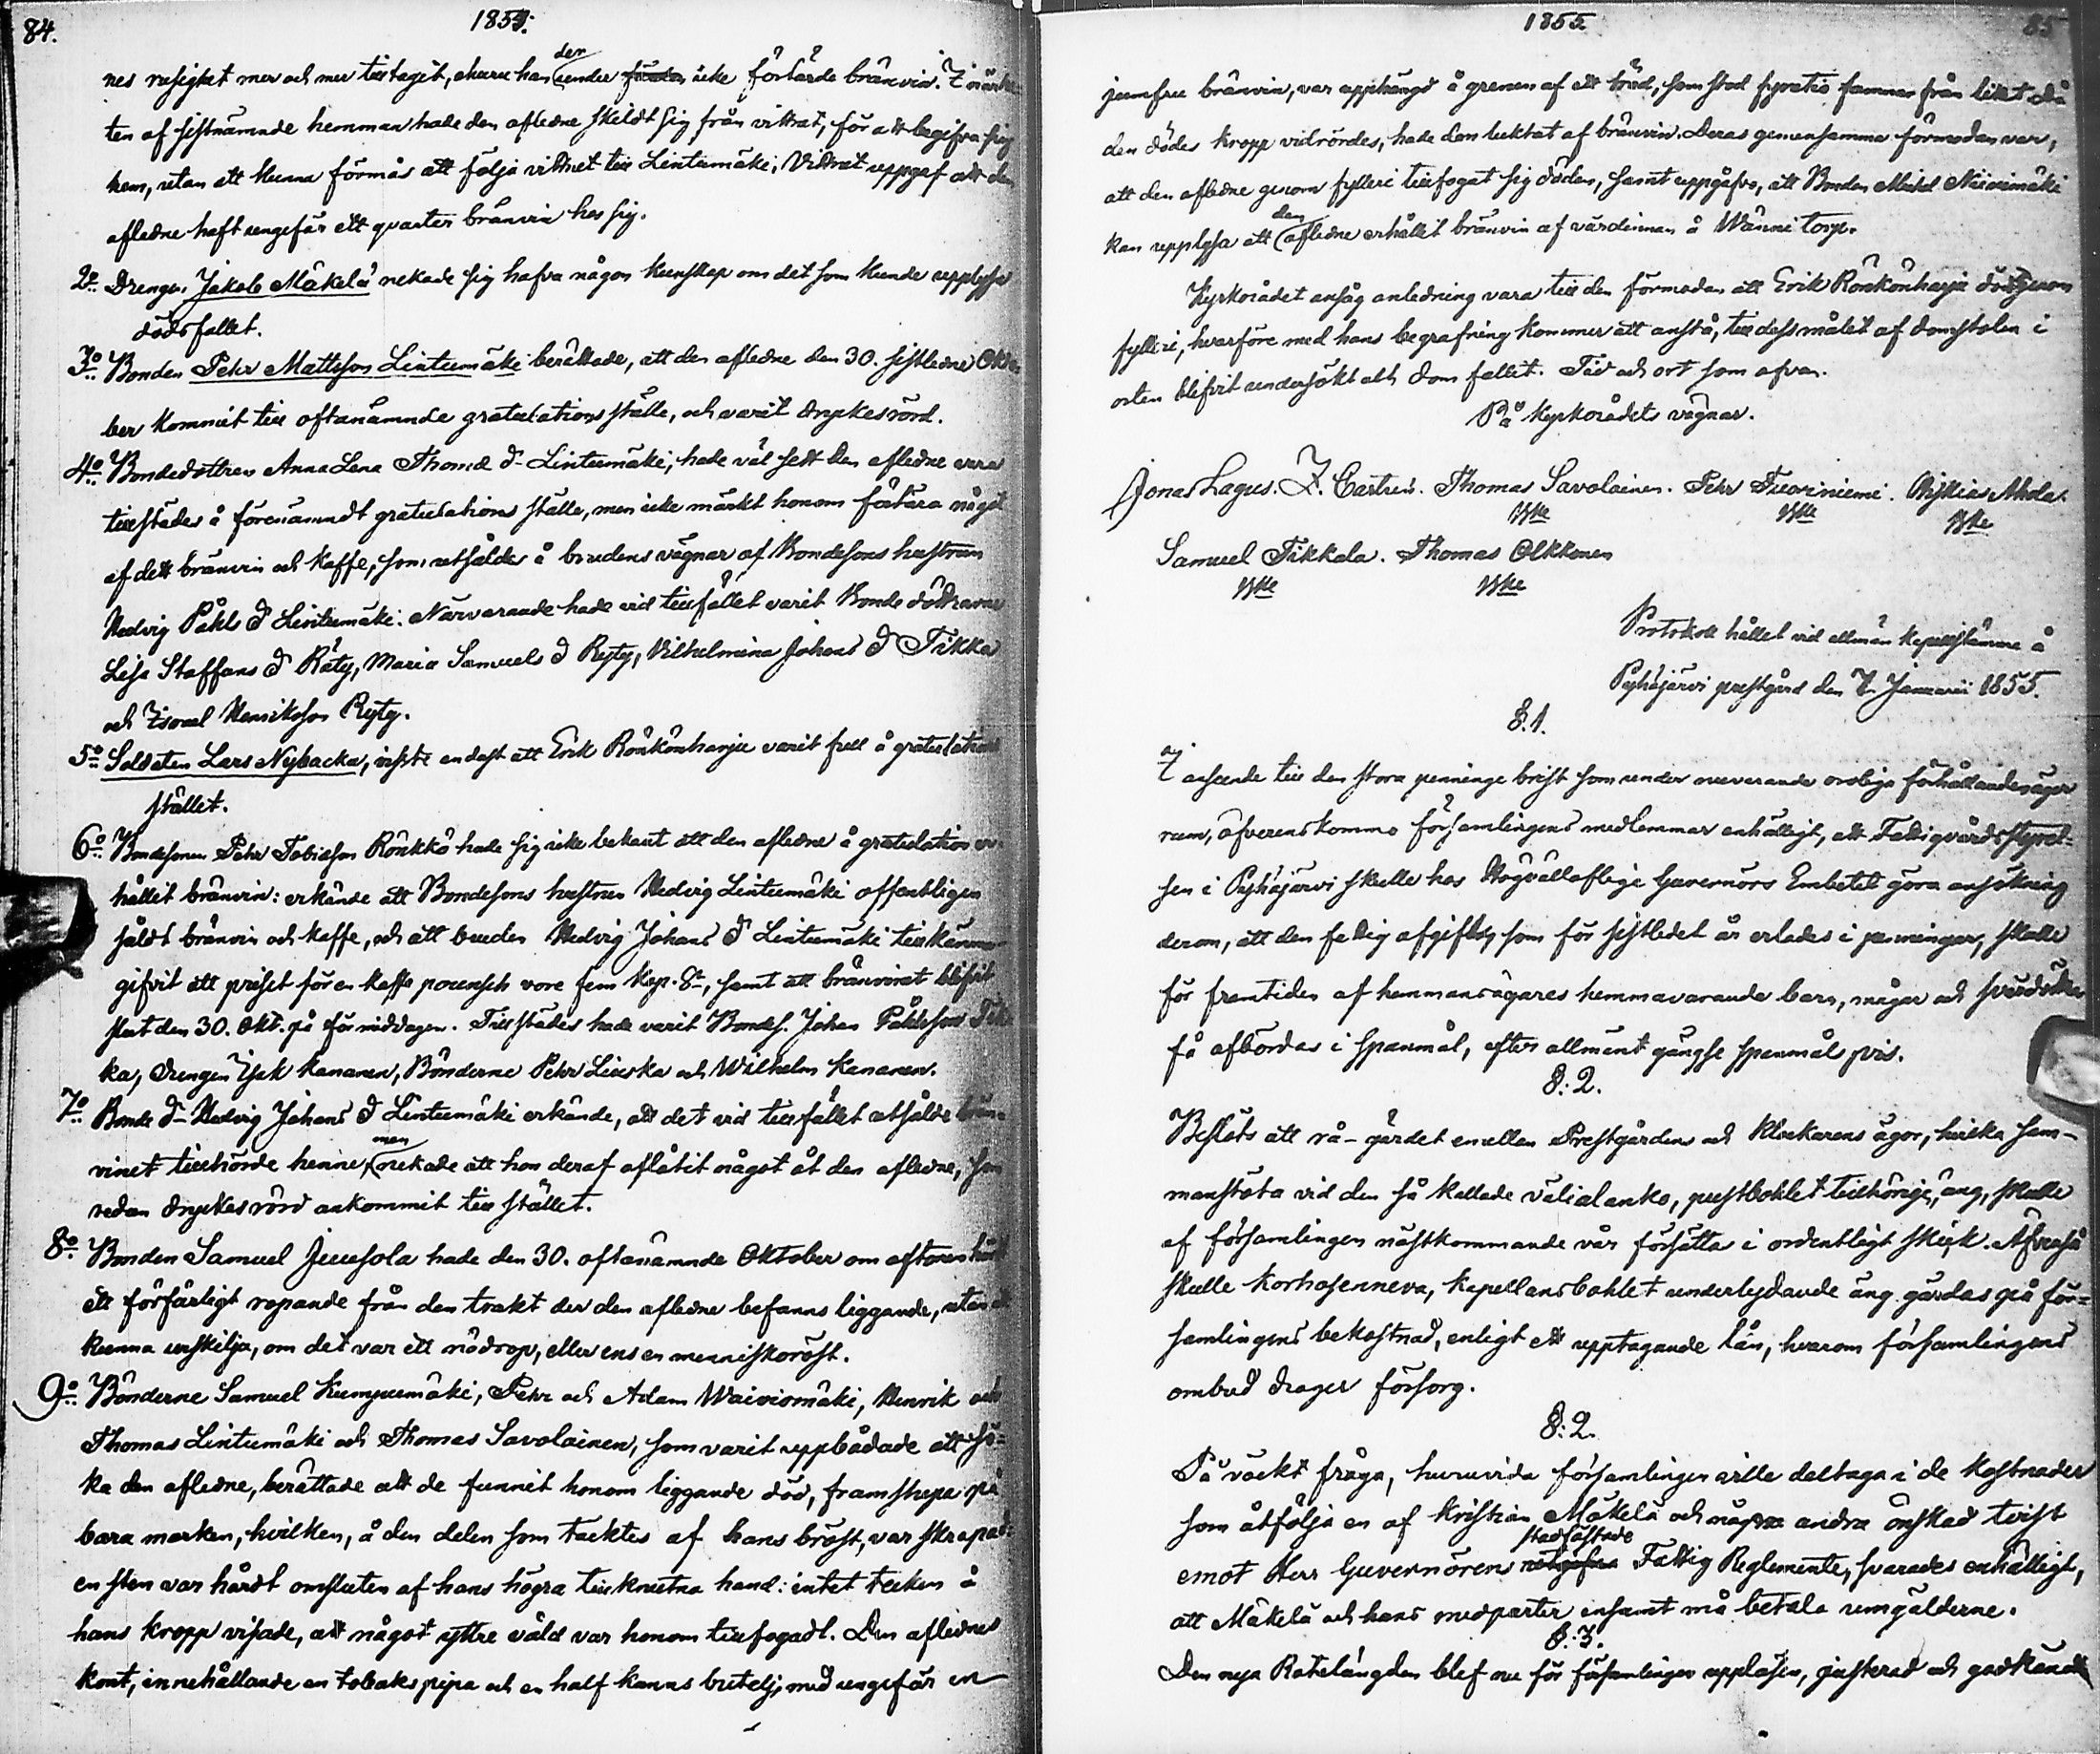 84.
1854.
nes rusighet mer och mer tilltagit, churu han den under icke förtärde bränvin. I närhe-
ten af sistnämnde hemman hade den aflidne skildt sig från vittnet, för att begifva sig
hem, utan att kunna förmås att följa vittnet till Lintumäki. Vittnet uppgaf att den
aflidne haft ungefär ett qvarter bränvin hos sig.
2o Drengen Jakob Mäkelä nekade sig hafva någon kunskap om det som kunde upplysa
dödsfallet.
3o Bonden Pehr Mattsson Lintumäki berättade, att den aflidne den 30. sistledne Okto-
ber kommit till oftanämnde gratulationsställe, och varit dryckesrörd.
4o Bondedottren Anna Lena Thomæ d- Lintumäki, hade väl sett den aflidne vara
tillstädes å förenämndt gratulations ställe, men icke märkt honom förtära något
af dett bränvin och kaffe, som utsåldes å brudens vägnar af Bondesons hustrun
Hedvig Påhls d Lintumäki. Närvarande hade vid tillfället varit Bonde döttrarne
Lisa Staffans d Räty, Maria Samuels d Ryty, Vilhelmina Johans d Tikka
och Israel Henriksson Ryty.
5o Soldaten Lars Nybacka, visste endast att Erik Rönkönharju varit full å gratulations
stället.
6o Bondesonen Pehr Tobiasson Rönkkö hade sig icke bekant att den aflidne å gratulation er-
hållit bränvin: erkände att Bondesons hustrun Hedvig Lintumäki offentligen
såldt bränvin och kaffe, och att bruden Hedvig Johans d Lintumäki tillkänna-
gifvit att priset för en kaffe pounsch vore fem kop. Sr, samt att bränvinet blifvit
slut den 30. Okt. på förmiddagen. Tillstädes hade varit Bondes. Johan Påhlsson Tik-
ka, drengen Isak Kananen, Bönderne Pehr Liuska och Wilhelm Kananen.
7o Bonde d- Hedvig Johans d Lintumäki erkände, att det vid tillfället utsålde brän-
vinet tillhörde henne, men nekade att hon deraf aflåtit något åt den aflidne, som
redan dryckesrörd ankommit till stället.
8o Bonden Samuel Juusola hade den 30. oftanämnde Oktober om aftonen hört
ett förfärligt ropande från den trakt der den aflidne befanns liggande, utan att
kunna urskilja, om det var ett nödrop, eller ens en menniskoröst.
9o Bönderne Samuel Kumpumäki, Pehr och Adam Waiviomäki, Henrik och
Thomas Lintumäki och Thomas Savolainen, som varit uppbådade att sö-
ka den aflidne, berättade att de funnit honom liggande död, framstupa på
bara marken, hvilken, å den delen som täcktes af hans bröst, var skrapad:
en sten var hårdt omsluten af hans högra tillknutna hand: intet tecken å
hans kropp visade, att något yttre våld var honom tillfogadt. Den aflidnes
kont, innehållande en tobakspipa och en half kannas butelj, med ungefär en
1855.
85
jumfru bränvin, var upphängd å grenen af ett träd, som stod fyratio famnar från liket. Då
den dödes kropp vidrördes, hade den luktat af bränvin. Deras gemensamma förmodan var,
att den aflidne genom fylleri tillfogat sig döden, samt uppgåfvo, att Bonden Mickel Niinimäki
kan upplysa att den aflidne erhållit bränvin af värdinnan å Wänni torp.
Kyrkorådet ansåg anledning vara till den förmodan att Erik Rönkönharju dödt genom
fylleri, hvarföre med hans begrafning kommer att anstå, till dess målet af domstolen i
orten blifvit undersökt och dom fallit. Tid och ort som ofvan.
På Kyrkorådets vägnar.
Jonas Lagus. Z. Castrén. Thomas Savolainen. Pehr Tuoriniemi. Chiskias Ahola.
Samuel Tikkala. Thomas Olkkonen
Protokoll hållet vid allmän kapellstämma å
Pyhäjärvi prestgård den 7. Januarii 1855.
§. 1.
I anseende till den stora penninge brist som under nuvarande oroliga förhållanden äger
rum, öfverenskommo församlingens medlemmar enhälligt, att Fattigvårdsstyrel-
sen i Pyhäjärvi skulle hos Högvällofliga Guvernörs Embetet göra ansökning
derom, att den fattig afgiften, som för sistledet år erlades i penningar, skulle
för framtiden af hemmansägares hemmavarande barn, mågar och
få afbördas i spanmål, efter allmänt gängse spanmåls pris.
§: 2.
Beslöts att rå-gärdet emellan Prestgårdens och Klockarens ägor, hvilka sam-
manstöta vid den så kallade välialanko, prestbohlet tillhörige, äng, skulle
af församlingen nästkommande vår försättas i ordentligt skick. Äfvenså
skulle Korhosenneva, kapellansbohlet underlydande äng gärdas på för-
samlingens bekostnad, enligt ett upptagande lån, hvarom församlingens
ombud drager försorg.
§: 2.
På väckt fråga, huruvida församlingen ville deltaga i de kostnader
som åtfölja en af Kristian Mäkelä och några andra önskad tvist
emot Herr Guvernörens stadfästade Fattig Reglemente, svarades enhälligt,
att Mäkelä och hans medparter ensamt må betala rumgälderne.
§: 3.
Den nya Rotelängden blef nu för församlingen uppläsen, justerad och godkänd